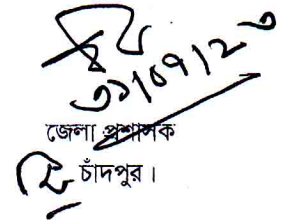 ৩১/০৭/২৩
জেলা প্রশাসক
চাঁদপুর।